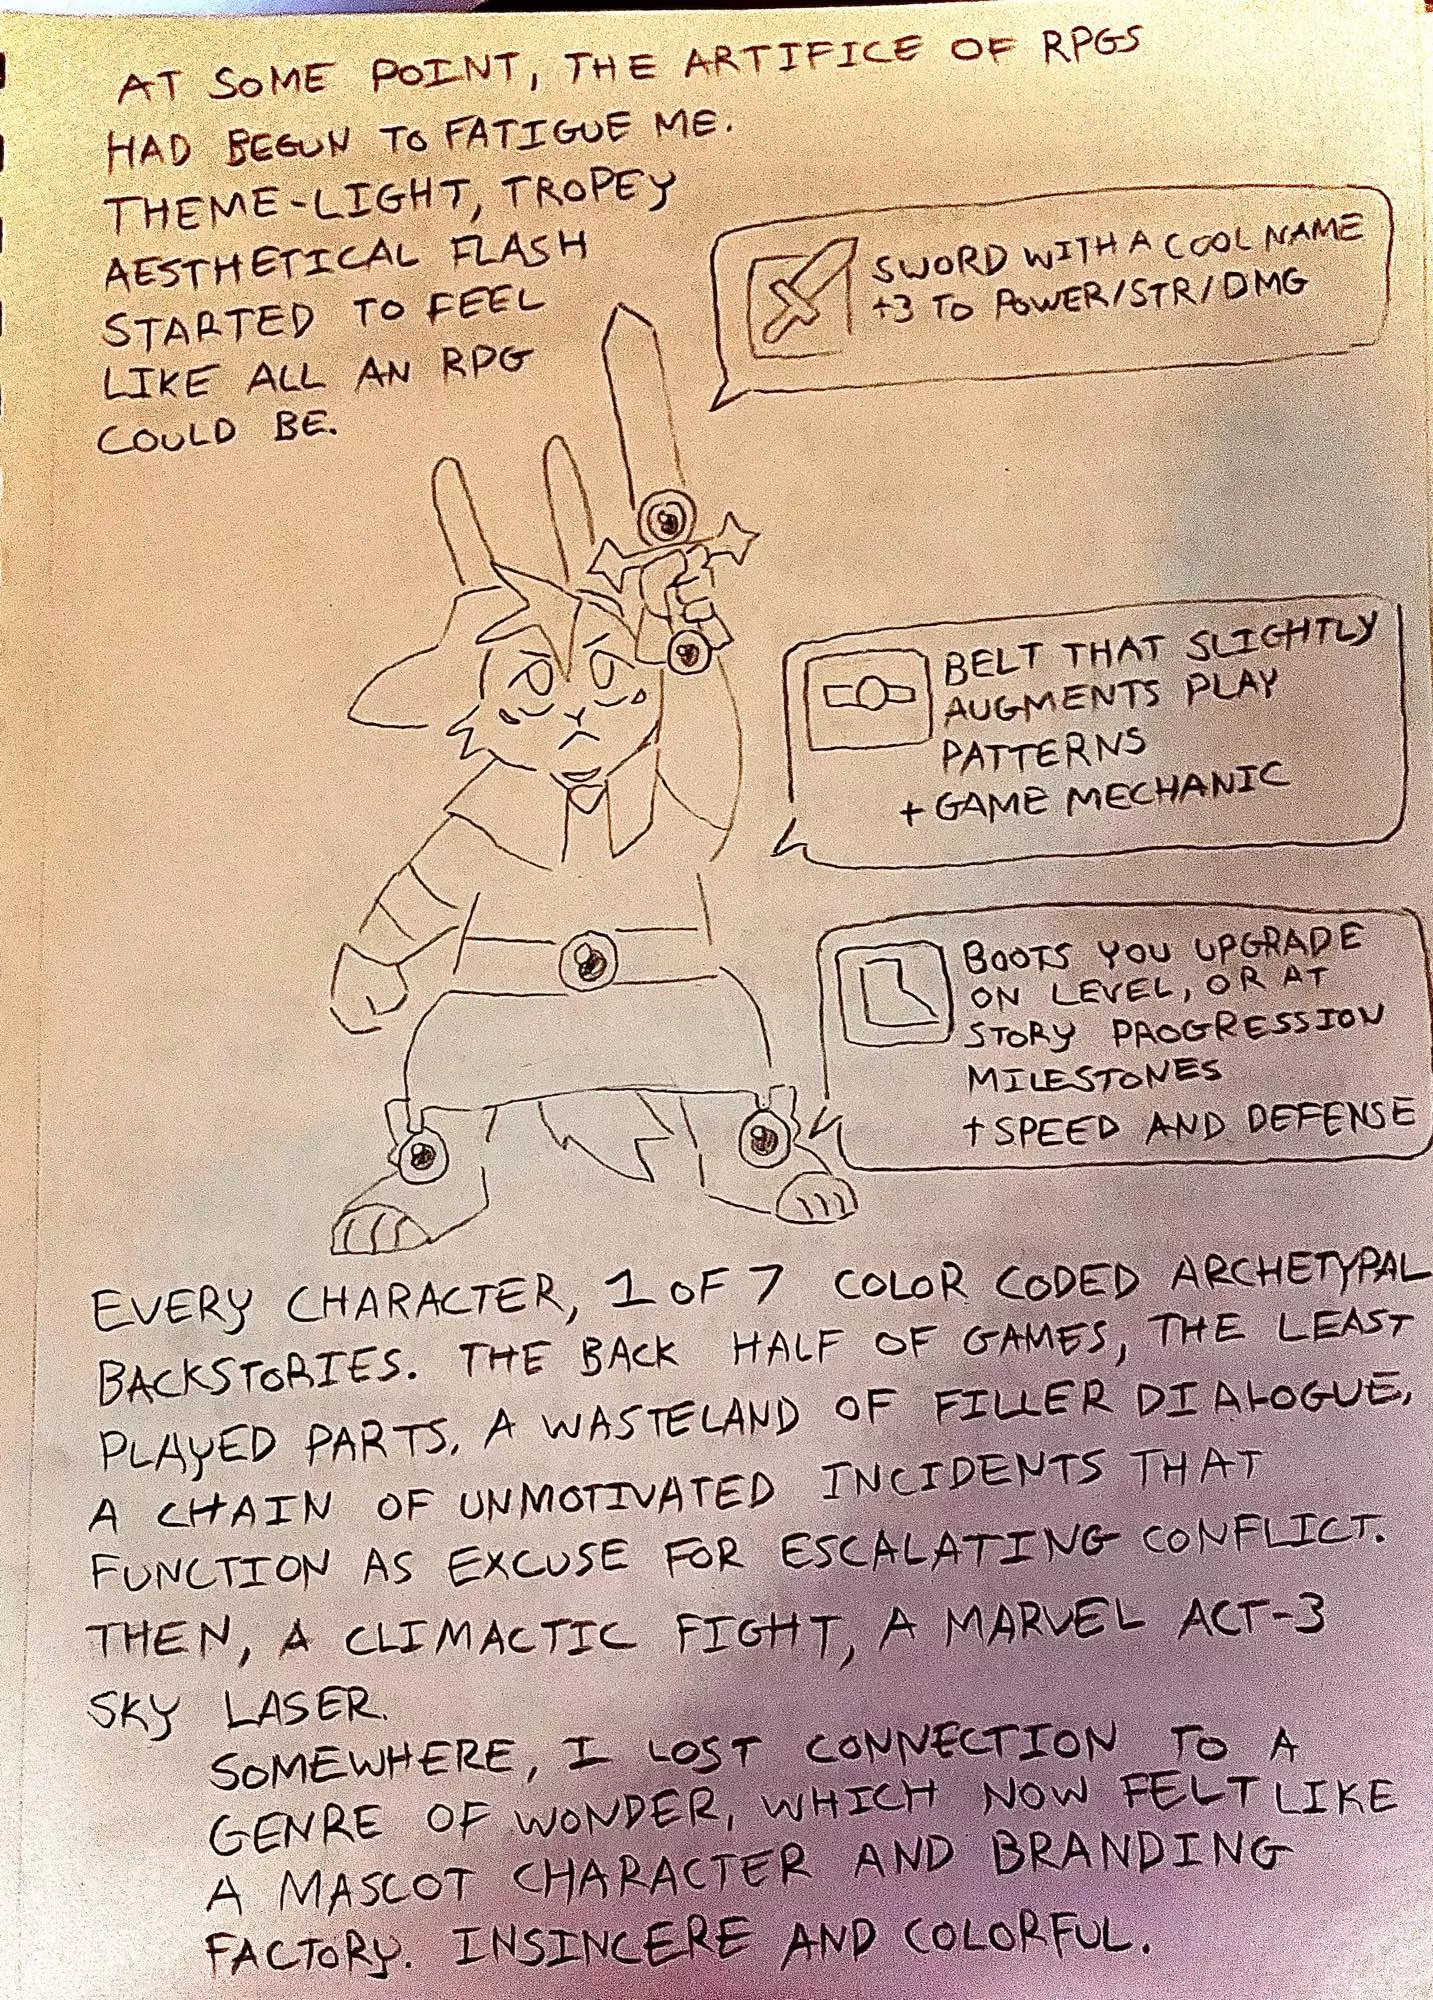 AT SOME POINT, THE ARTIFICE OF RPGS
HAD BEGUN TO FATIGUE ME.
THEME-LIGHT, TROPEY
AESTHETICAL FLASH
STARTED TO FEEL
LIKE ALL AN RPG
COULD BE.
SWORD WITH A COOL NAME
+3 TO POWER/STR/DMG
BELT THAT SLIGHTLY
AUGMENTS PLAY
PATTERNS
+ GAME MECHANIC
BOOTS YOU UPGRADE
ON LEVEL, OR AT
STORY PROGRESSION
MILESTONES
+ SPEED AND DEFENSE
EVERY CHARACTER, 1 OF 7 COLOR CODED ARCHETYPAL
BACKSTORIES. THE BACK HALF OF GAMES, THE LEAST
PLAYED PARTS, A WASTELAND OF FILLER DIALOGUE,
A CHAIN OF UNMOTIVATED INCIDENTS THAT
FUNCTION AS EXCUSE FOR ESCALATING CONFLICT.
THEN, A CLIMACTIC FIGHT, A MARVEL ACT-3
SKY LASER.
SOMEWHERE, I LOST CONNECTION TO A
GENRE OF WONDER, WHICH NOW FELT LIKE
A MASCOT CHARACTER AND BRANDING
FACTORY. INSINCERE AND COLORFUL.